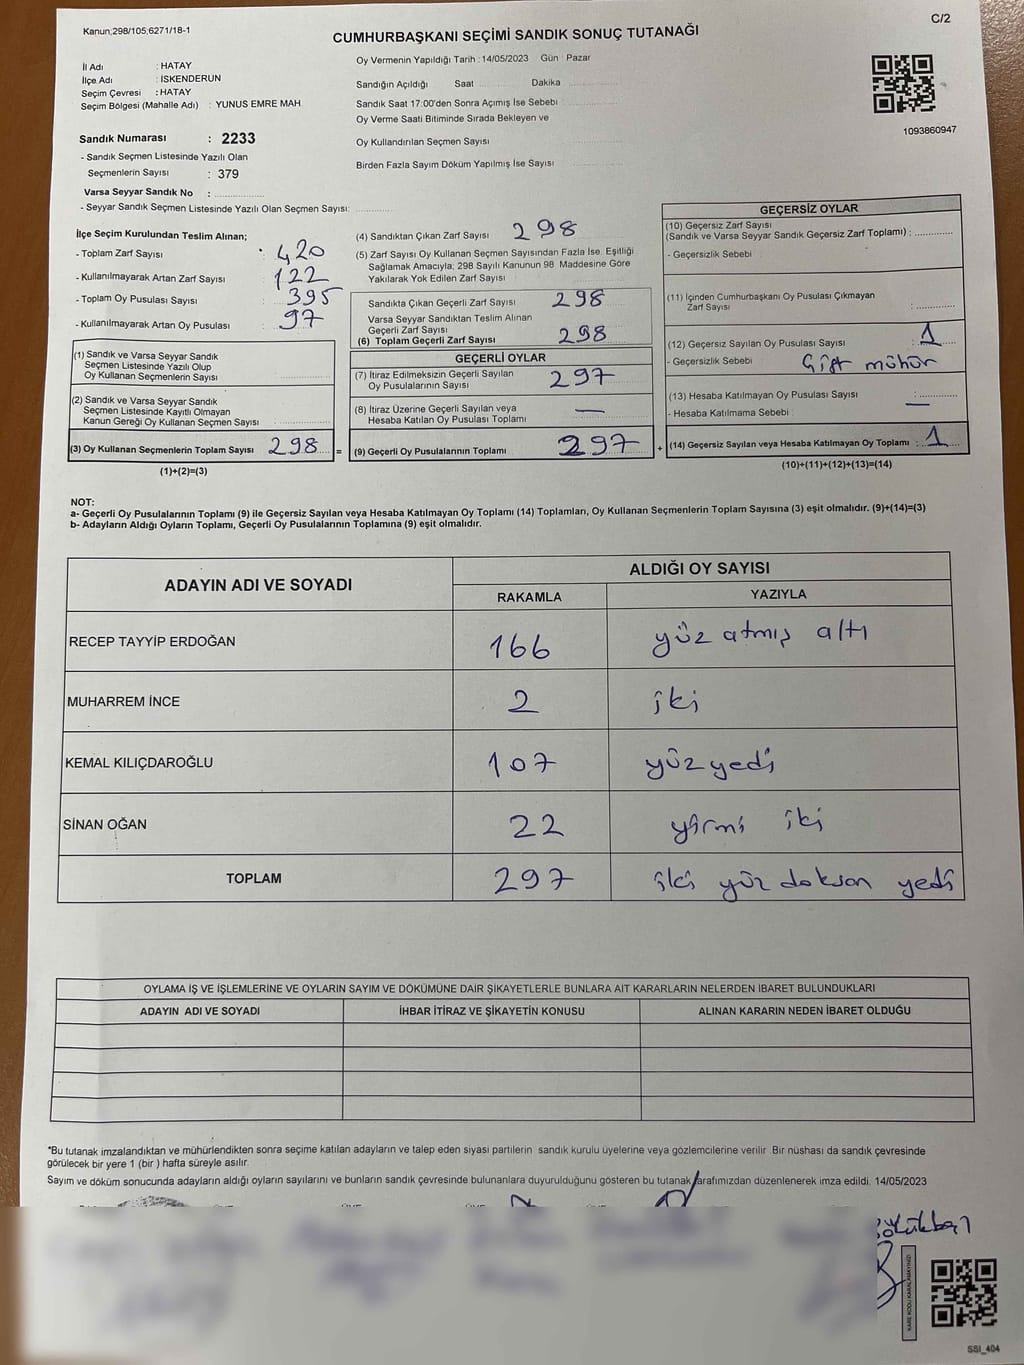 Kanun;298/105;6271/18-1
C/2
CUMHURBAŞKANI SEÇİMİ SANDIK SONUÇ TUTANAĞI
İl Adı : HATAY
İlçe Adı : İSKENDERUN
Seçim Çevresi : HATAY
Seçim Bölgesi (Mahalle Adı) : YUNUS EMRE MAH.
Sandık Numarası : 2233
- Sandık Seçmen Listesinde Yazılı Olan
Seçmenlerin Sayısı : 379
Varsa Seyyar Sandık No :
- Seyyar Sandık Seçmen Listesinde Yazılı Olan Seçmen Sayısı:
Oy Vermenin Yapıldığı Tarih : 14/05/2023 Gün : Pazar
Sandığın Açıldığı Saat Dakika
Sandık Saat 17:00'den Sonra Açımış İse Sebebi
Oy Verme Saati Bitiminde Sırada Bekleyen ve
Oy Kullandırılan Seçmen Sayısı
Birden Fazla Sayım Döküm Yapılmış İse Sayısı
1093860947
İlçe Seçim Kurulundan Teslim Alınan;
- Toplam Zarf Sayısı : 420
- Kullanılmayarak Artan Zarf Sayısı : 122
- Toplam Oy Pusulası Sayısı : 395
- Kullanılmayarak Artan Oy Pusulası : 97
(1) Sandık ve Varsa Seyyar Sandık
Seçmen Listesinde Yazılı Olup
Oy Kullanan Seçmenlerin Sayısı
(2) Sandık ve Varsa Seyyar Sandık
Seçmen Listesinde Kayıtlı Olmayan
Kanun Gereği Oy Kullanan Seçmen Sayısı
(3) Oy Kullanan Seçmenlerin Toplam Sayısı 298 =
(1)+(2)=(3)
(4) Sandıktan Çıkan Zarf Sayısı 298
(5) Zarf Sayısı Oy Kullanan Seçmen Sayısından Fazla İse, Eşitliği
Sağlamak Amacıyla, 298 Sayılı Kanunun 98. Maddesine Göre
Yakılarak Yok Edilen Zarf Sayısı
Sandıkta Çıkan Geçerli Zarf Sayısı 298
Varsa Seyyar Sandıktan Teslim Alınan
Geçerli Zarf Sayısı
(6) Toplam Geçerli Zarf Sayısı 298
GEÇERLİ OYLAR
(7) İtiraz Edilmeksizin Geçerli Sayılan
Oy Pusulalarının Sayısı 297
(8) İtiraz Üzerine Geçerli Sayılan veya
Hesaba Katılan Oy Pusulası Toplamı —
(9) Geçerli Oy Pusulalarının Toplamı 297 +
GEÇERSİZ OYLAR
(10) Geçersiz Zarf Sayısı
(Sandık ve Varsa Seyyar Sandık Geçersiz Zarf Toplamı) :
- Geçersizlik Sebebi :
(11) İçinden Cumhurbaşkanı Oy Pusulası Çıkmayan
Zarf Sayısı :
(12) Geçersiz Sayılan Oy Pusulası Sayısı : 1
- Geçersizlik Sebebi : Çift mühür
(13) Hesaba Katılmayan Oy Pusulası Sayısı : —
- Hesaba Katılmama Sebebi :
(14) Geçersiz Sayılan veya Hesaba Katılmayan Oy Toplamı : 1
(10)+(11)+(12)+(13)=(14)
NOT:
a- Geçerli Oy Pusulalarının Toplamı (9) ile Geçersiz Sayılan veya Hesaba Katılmayan Oy Toplamı (14) Toplamları, Oy Kullanan Seçmenlerin Toplam Sayısına (3) eşit olmalıdır. (9)+(14)=(3)
b- Adayların Aldığı Oyların Toplamı, Geçerli Oy Pusulalarının Toplamına (9) eşit olmalıdır.
ADAYIN ADI VE SOYADI
ALDIĞI OY SAYISI
RAKAMLA YAZIYLA
RECEP TAYYİP ERDOĞAN 166 yüz atmış altı
MUHARREM İNCE 2 iki
KEMAL KILIÇDAROĞLU 107 yüzyedi
SİNAN OĞAN 22 yirmi iki
TOPLAM 297 iki yüz doksan yedi
OYLAMA İŞ VE İŞLEMLERİNE VE OYLARIN SAYIM VE DÖKÜMÜNE DAİR ŞİKAYETLERLE BUNLARA AİT KARARLARIN NELERDEN İBARET BULUNDUKLARI
ADAYIN ADI VE SOYADI İHBAR İTİRAZ VE ŞİKAYETİN KONUSU ALINAN KARARIN NEDEN İBARET OLDUĞU
*Bu tutanak imzalandıktan ve mühürlendikten sonra seçime katılan adayların ve talep eden siyasi partilerin sandık kurulu üyelerine veya gözlemcilerine verilir. Bir nüshası da sandık çevresinde
görülecek bir yere 1 (bir ) hafta süreyle asılır.
Sayım ve döküm sonucunda adayların aldığı oyların sayılarını ve bunların sandık çevresinde bulunanlara duyurulduğunu gösteren bu tutanak tarafımızdan düzenlenerek imza edildi. 14/05/2023
KARE KODU KARALAMAYINIZ!
SSI_404